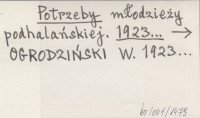 Potrzeby młodzieży
podhalańskiej. 1923... →
OGRODZIŃSKI W. 1923...